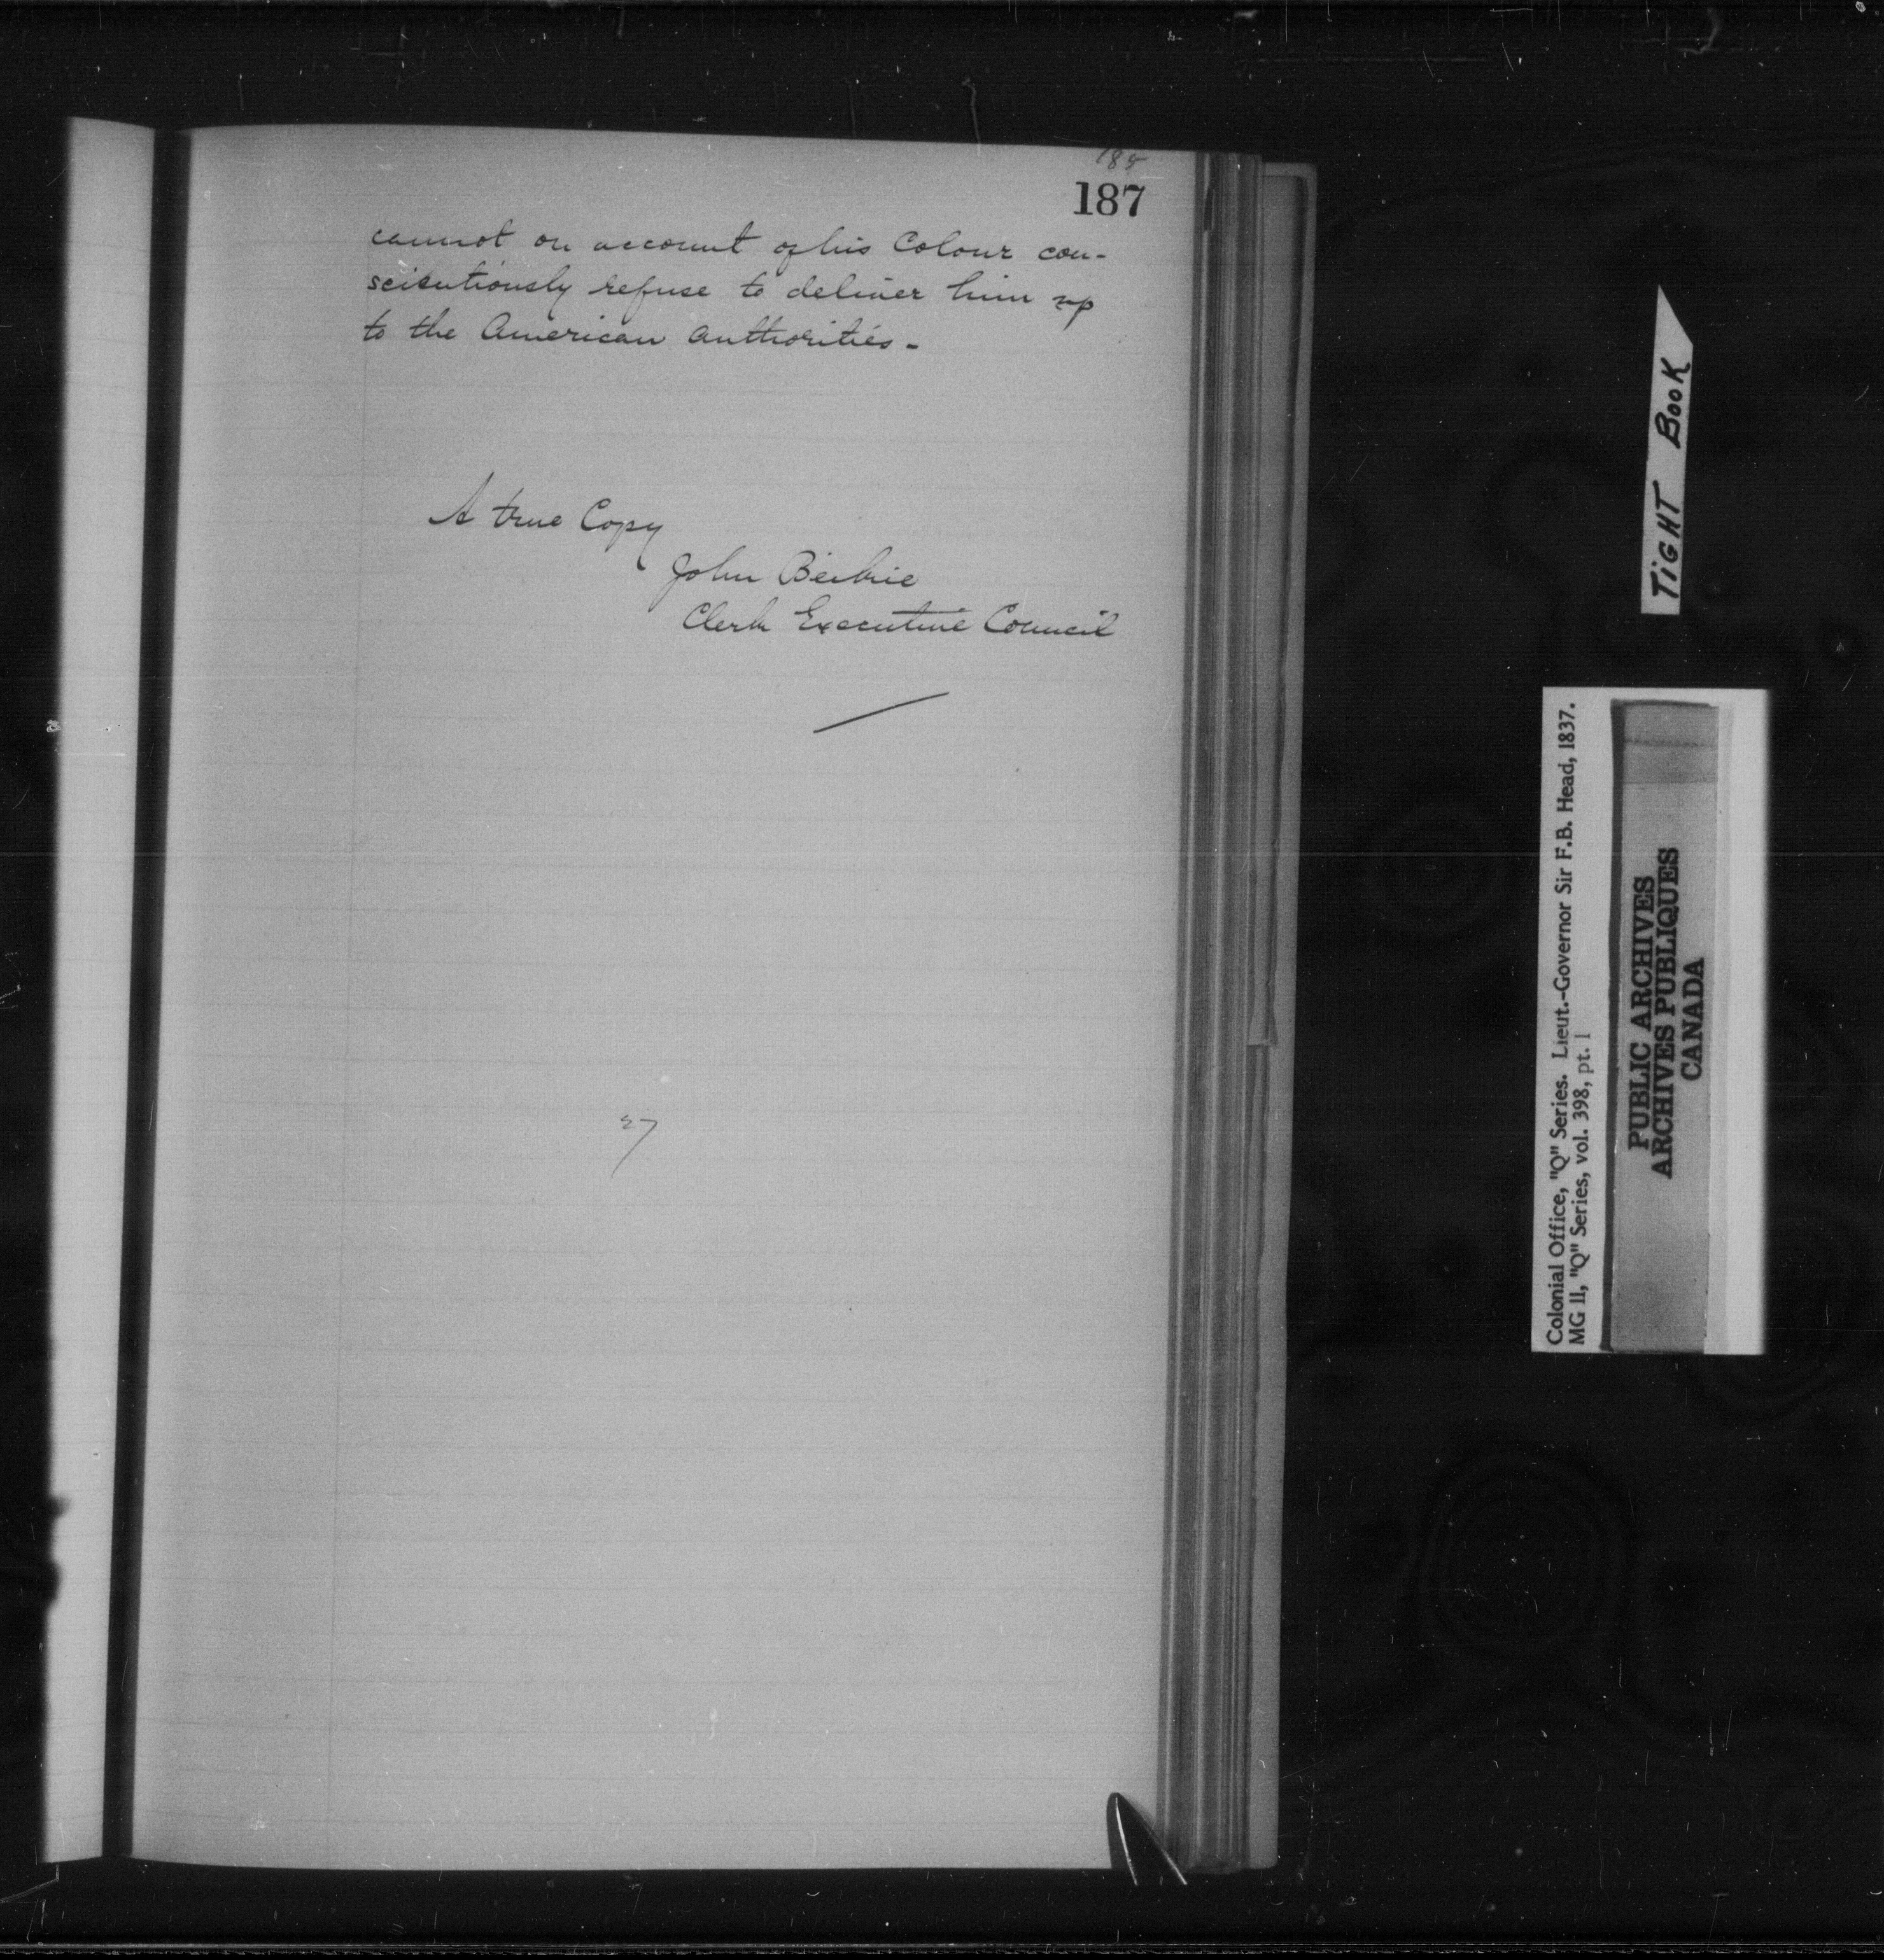 185
187
cannot on account of his Colour con-
scientiously refuse to deliver him up
to the American Authorities -
A true Copy
John Beikie
Clerk Executive Council
27
TIGHT BOOK
Colonial Office, "Q" Series. Lieut.-Governor Sir F.B. Head, 1837.
MG 11, "Q" Series, vol. 398, pt. 1
PUBLIC ARCHIVES
ARCHIVES PUBLIQUES
CANADA